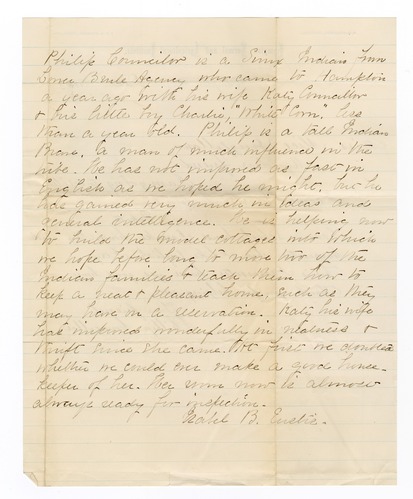 Philip Councilor is a Sioux Indian from
Lower Brule Agency who came to Hampton
a year ago with his wife Kate Councilor
& his little boy Charlie, "White Corn", less
than a year old. Philip is a tall Indian
Brave, a man of much influence in the
tribe. He has not improved as fast in
English as we hoped he might, but he
has gained very much in ideas and
general intelligence. He is helping now
to build the model cottages into which
we hope before long to move two of the
Indian families & teach them how to
keep a neat & pleasant home, such as they
may have on a reservation. Kate his wife
has improved wonderfully in neatness &
thrift since she came. At first we wondered
whether we could ever make a good house-
keeper of her. Her room now is almost
always ready for inspection.
Isabel B. Eustis.